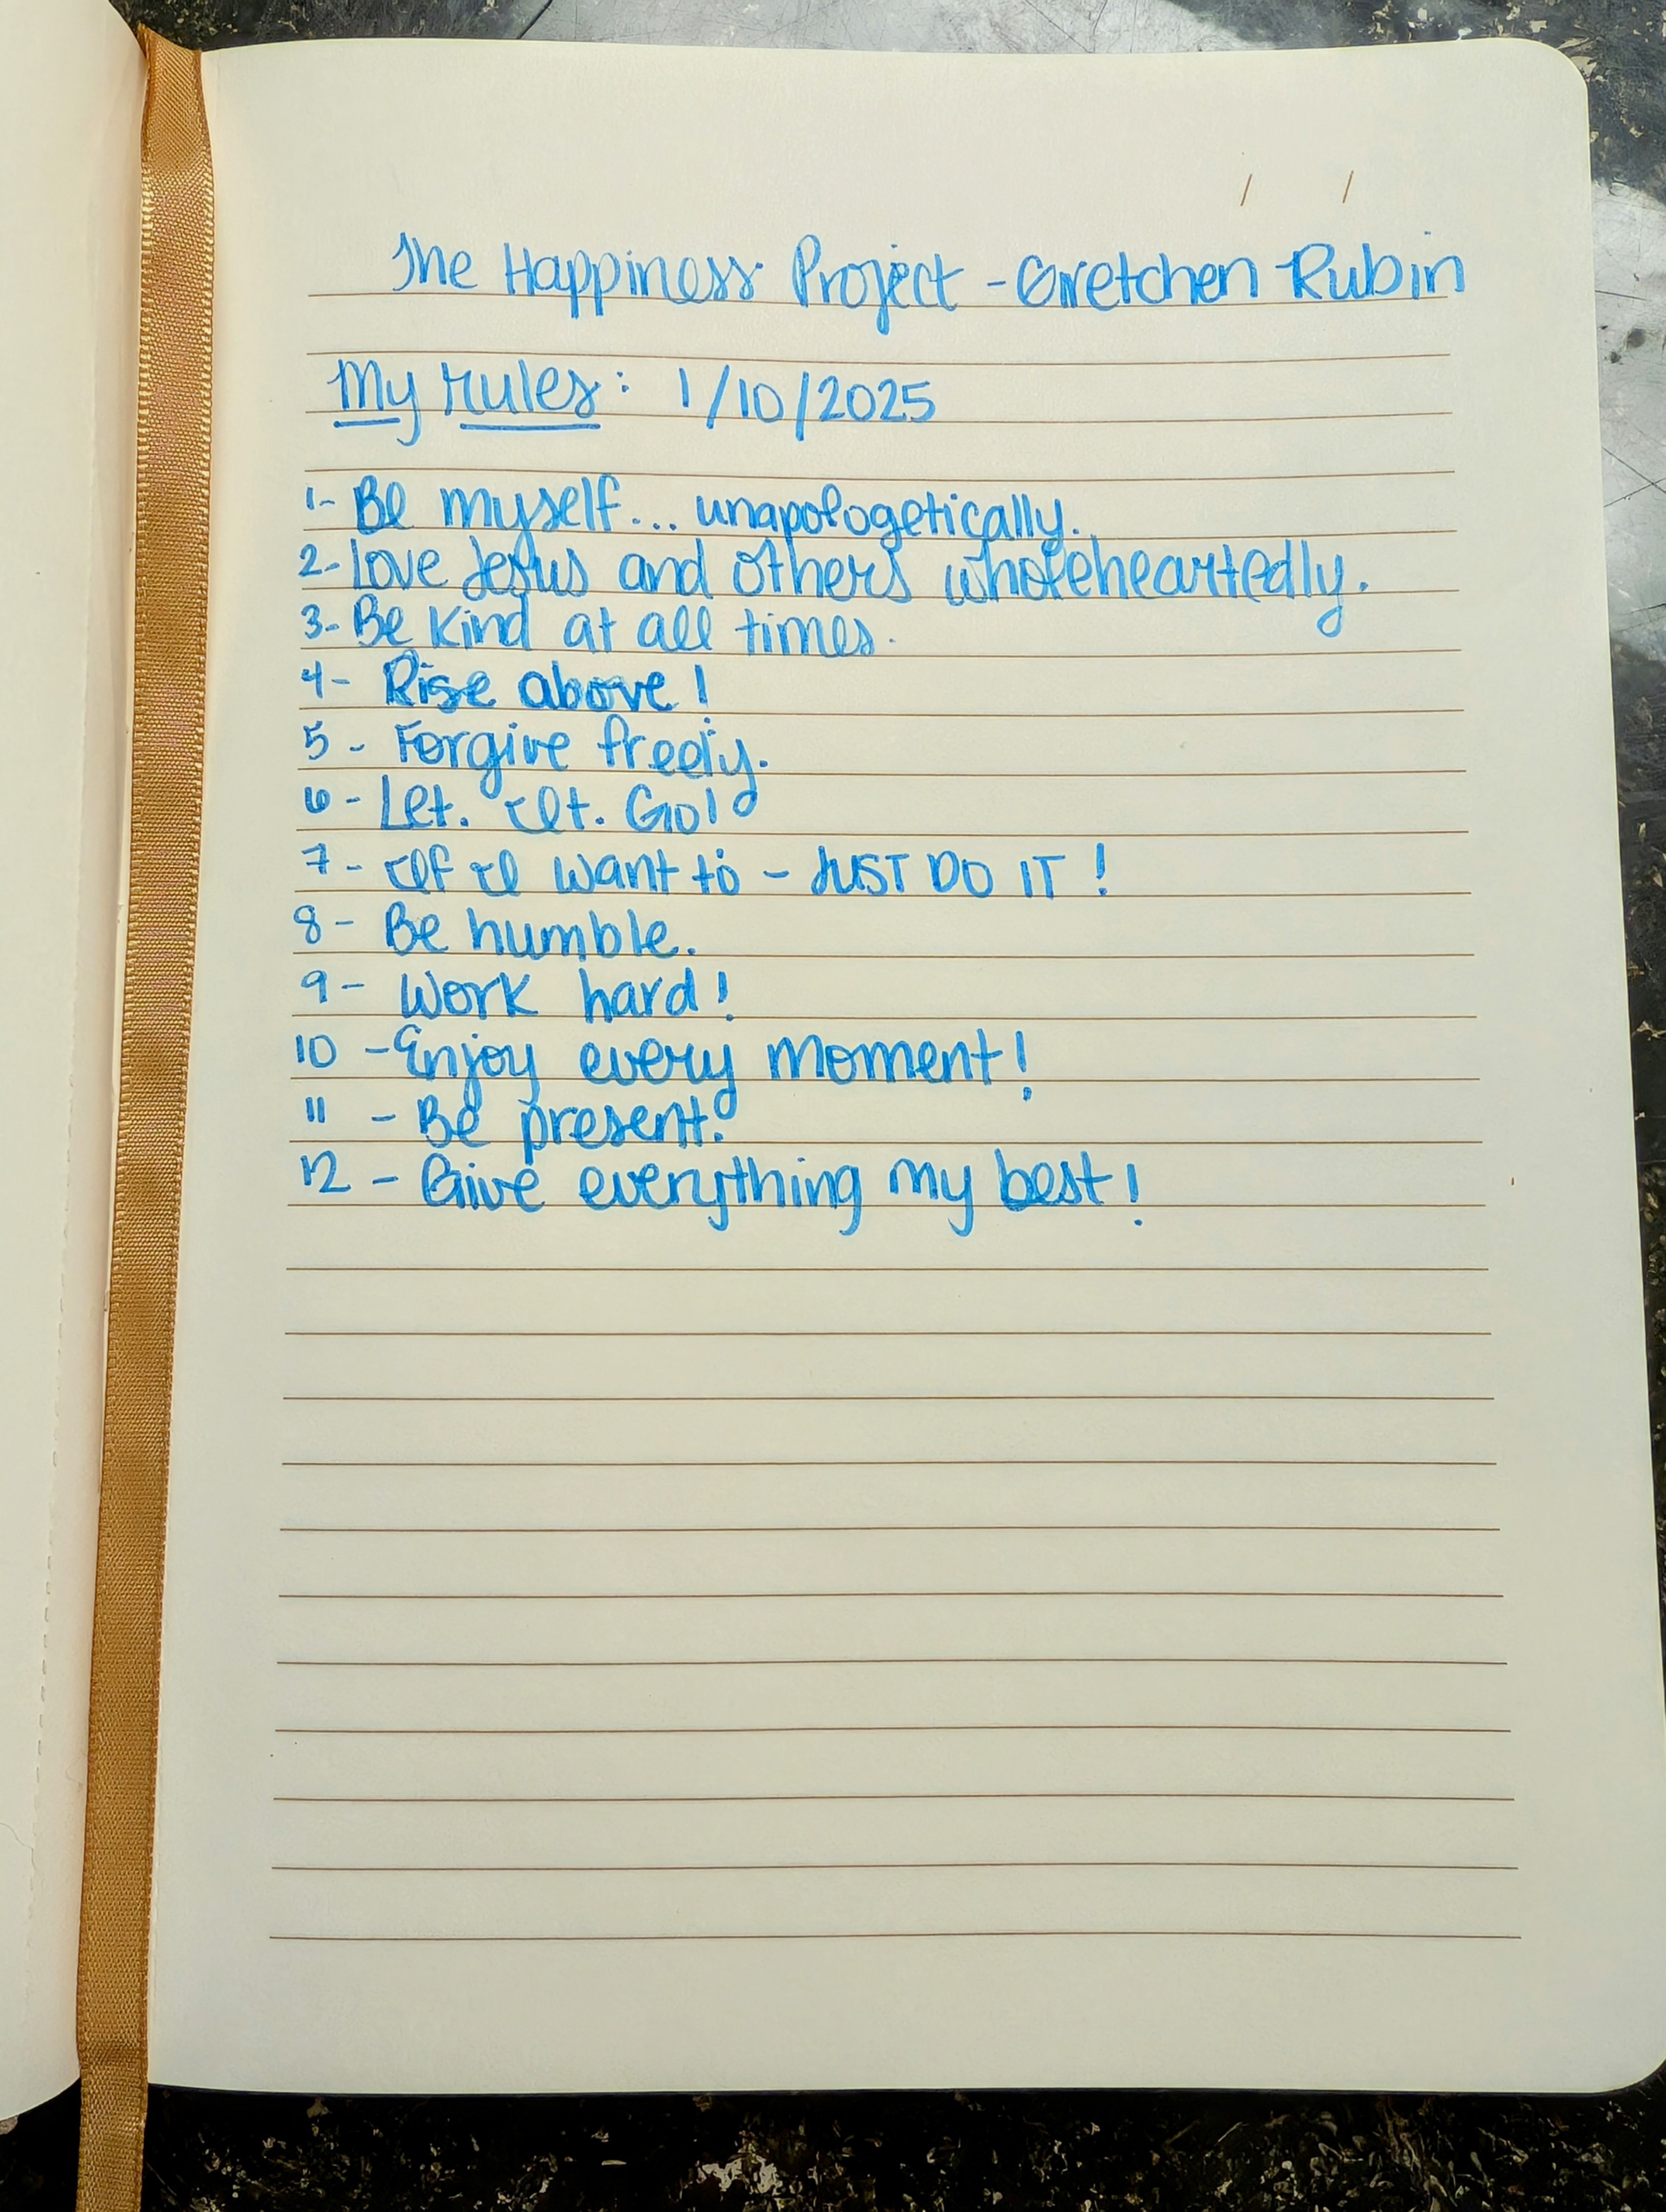 The Happiness Project - Gretchen Rubin
My rules: 1/10/2025
1- Be myself... unapologetically.
2- Love Jesus and others wholeheartedly.
3- Be Kind at all times.
4- Rise above!
5 - Forgive freely.
6 - Let. It. Go!
7 - If I want to - JUST DO IT!
8 - Be humble.
9 - Work hard!
10 - Enjoy every moment!
11 - Be present.
12 - Give everything my best!